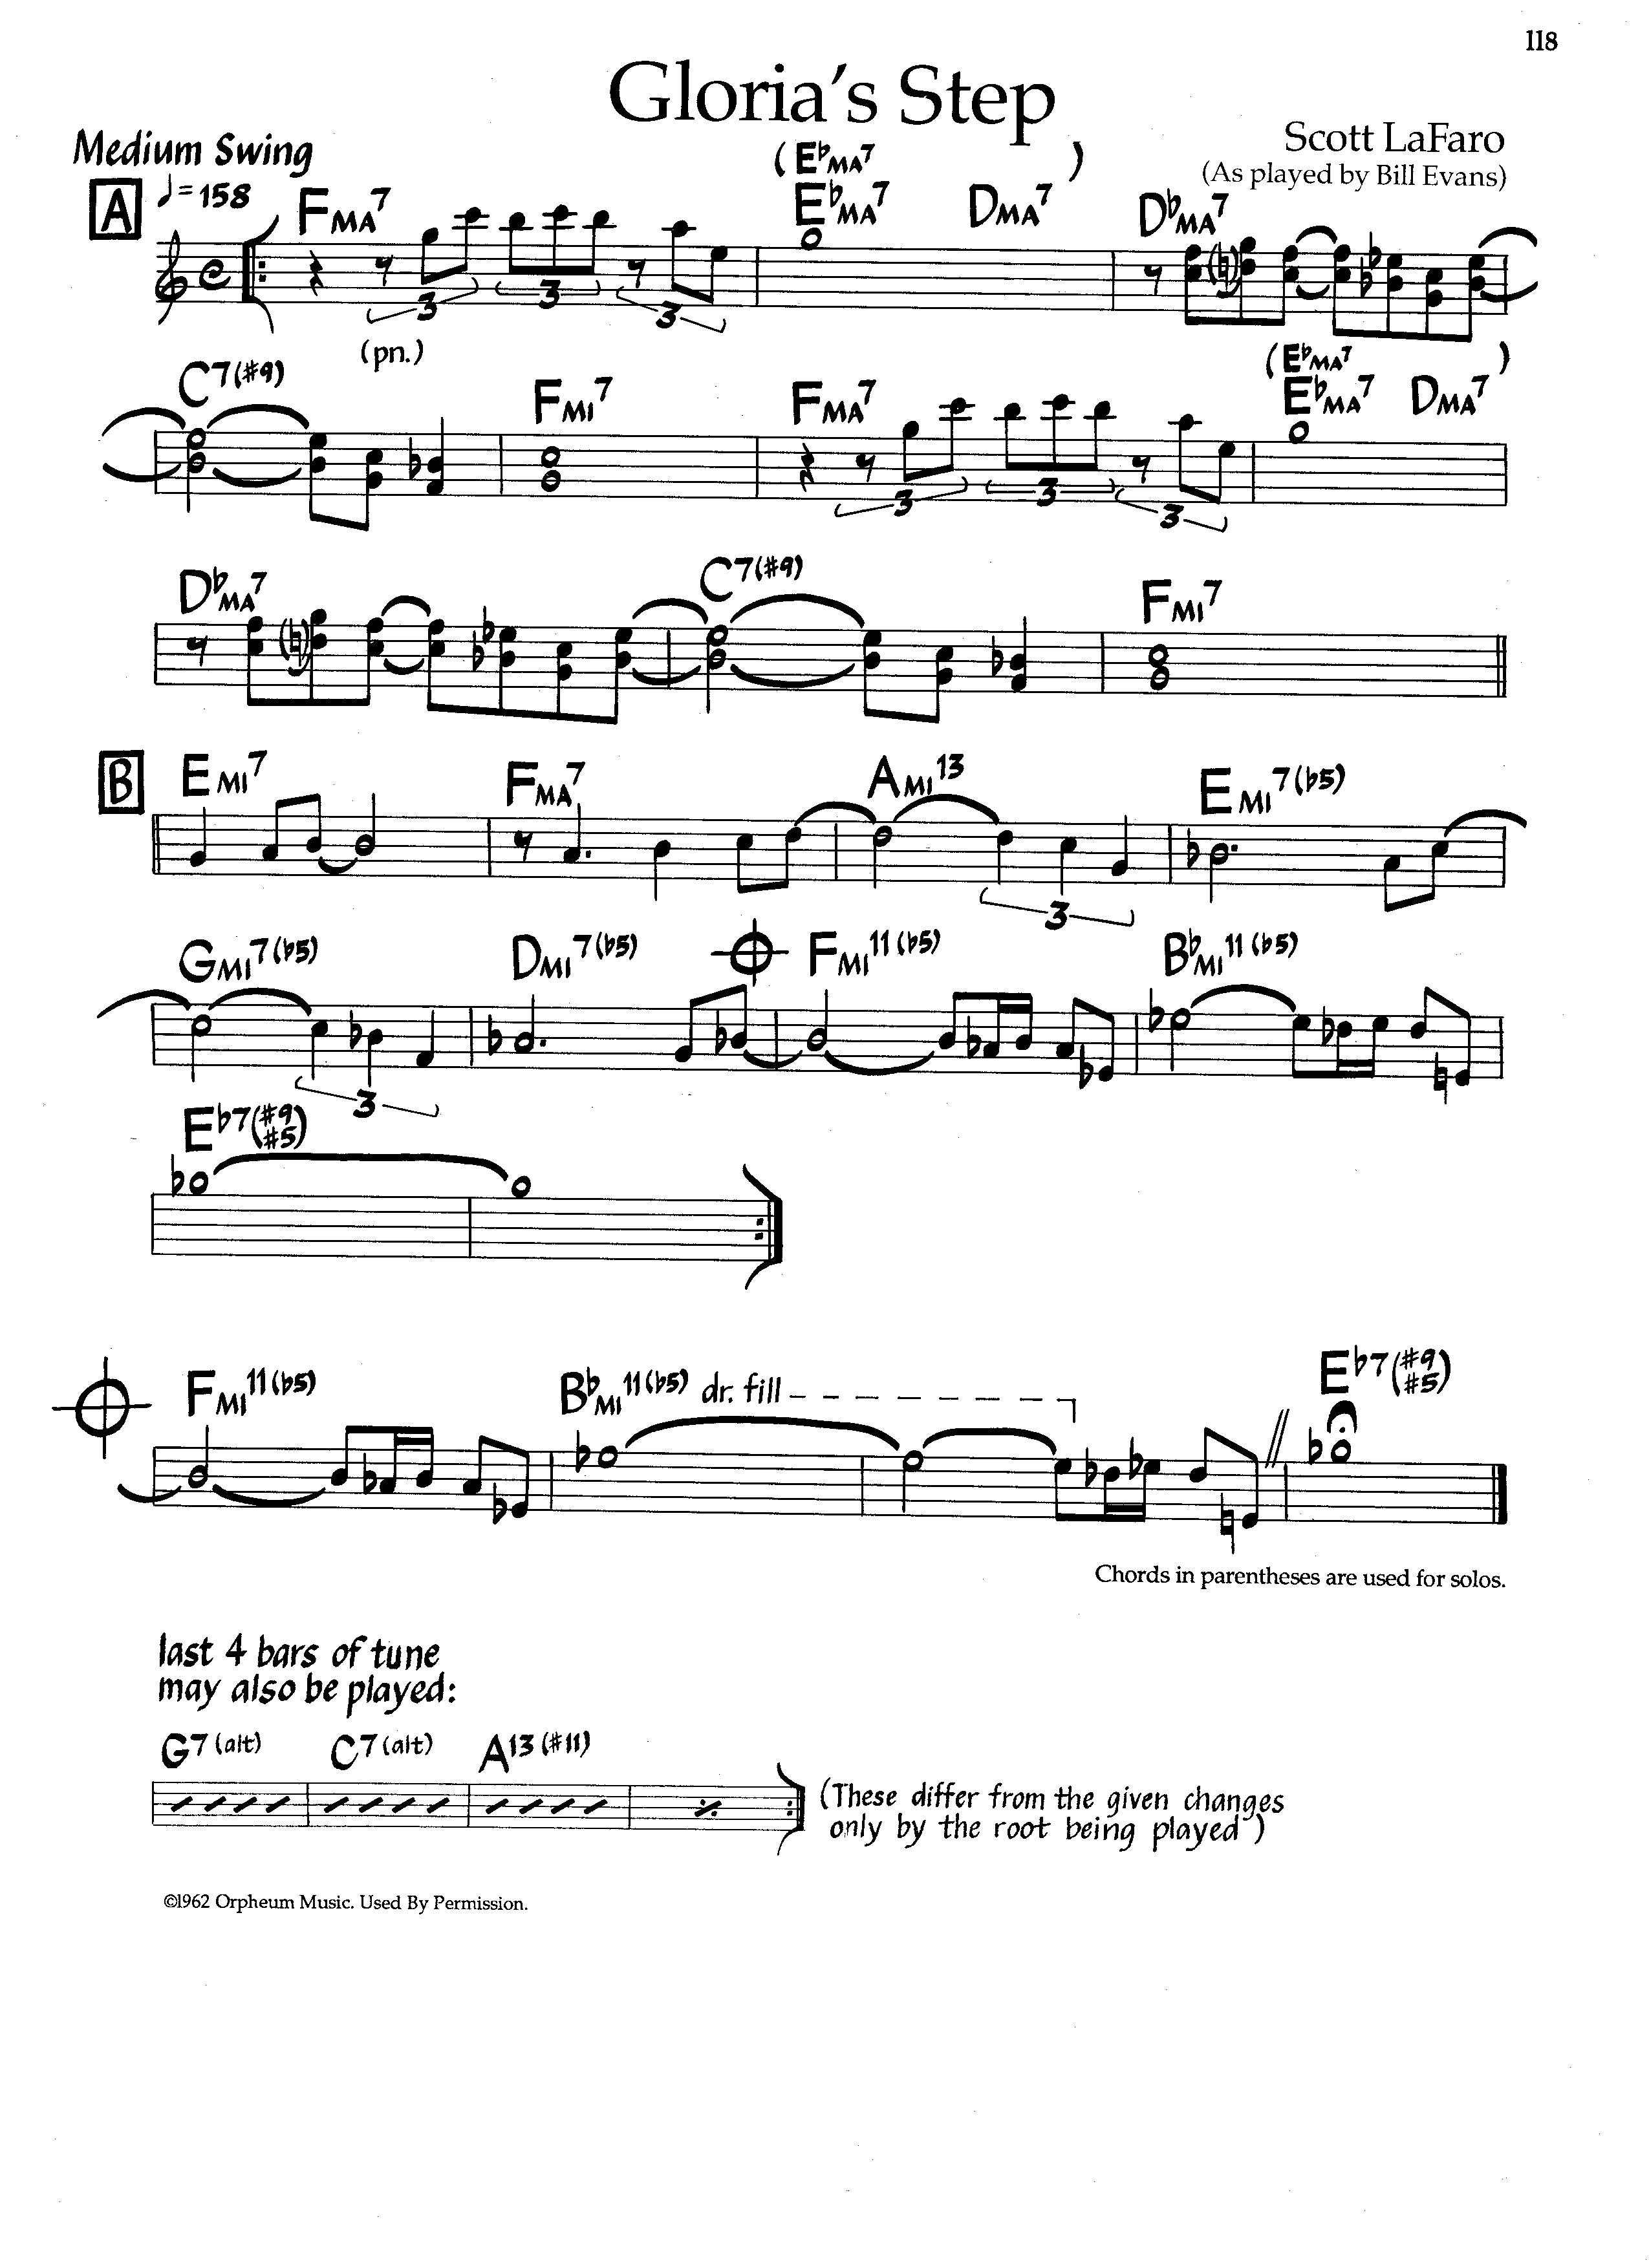 118
Gloria's Step
Medium Swing
Scott LaFaro
(As played by Bill Evans)
A ♩=158
(E♭MA7 )
FMA7 E♭MA7 DMA7 D♭MA7
3 3 3
(pn.)
(E♭MA7 )
C7(#9) FMI7 FMA7 E♭MA7 DMA7
3 3 3
D♭MA7 C7(#9) FMI7
B EMI7 FMA7 AMI13 EMI7(♭5)
3
GMI7(♭5) DMI7(♭5) FMI11(♭5) B♭MI11(♭5)
3
E♭7(#9 #5)
FMI11(♭5) B♭MI11(♭5) dr. fill E♭7(#9 #5)
Chords in parentheses are used for solos.
last 4 bars of tune
may also be played:
G7(alt) C7(alt) A13(#11)
(These differ from the given changes
only by the root being played)
©1962 Orpheum Music. Used By Permission.